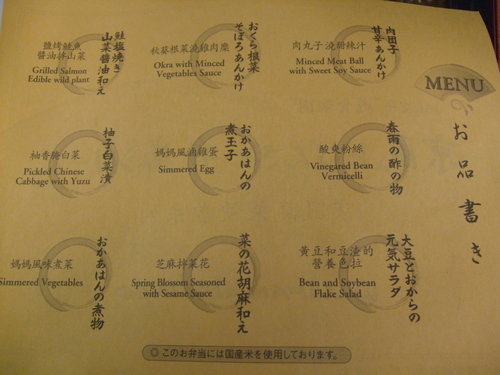 MENU
お品書き
肉団子
甘辛あんかけ
肉丸子 澆甜辣汁
Minced Meat Ball
with Sweet Soy Sauce
おくら根菜
そぼろあんかけ
秋葵根菜澆雞肉糜
Okra with Minced
Vegetables Sauce
鮭塩焼き
山菜醤油和え
鹽烤鮭魚
醬油拌山菜
Grilled Salmon
Edible wild plant
春雨の酢の物
酸爽粉絲
Vinegared Bean
Vermicelli
おかあはんの
煮玉子
媽媽風滷雞蛋
Simmered Egg
柚子白菜漬
柚香醃白菜
Pickled Chinese
Cabbage with Yuzu
大豆とおからの
元気サラダ
黃豆和豆渣的
營養色拉
Bean and Soybean
Flake Salad
菜の花胡麻和え
芝麻拌菜花
Spring Blossom Seasoned
with Sesame Sauce
おかあはんの煮物
媽媽風味煮菜
Simmered Vegetables
◎このお弁当には国産米を使用しております。